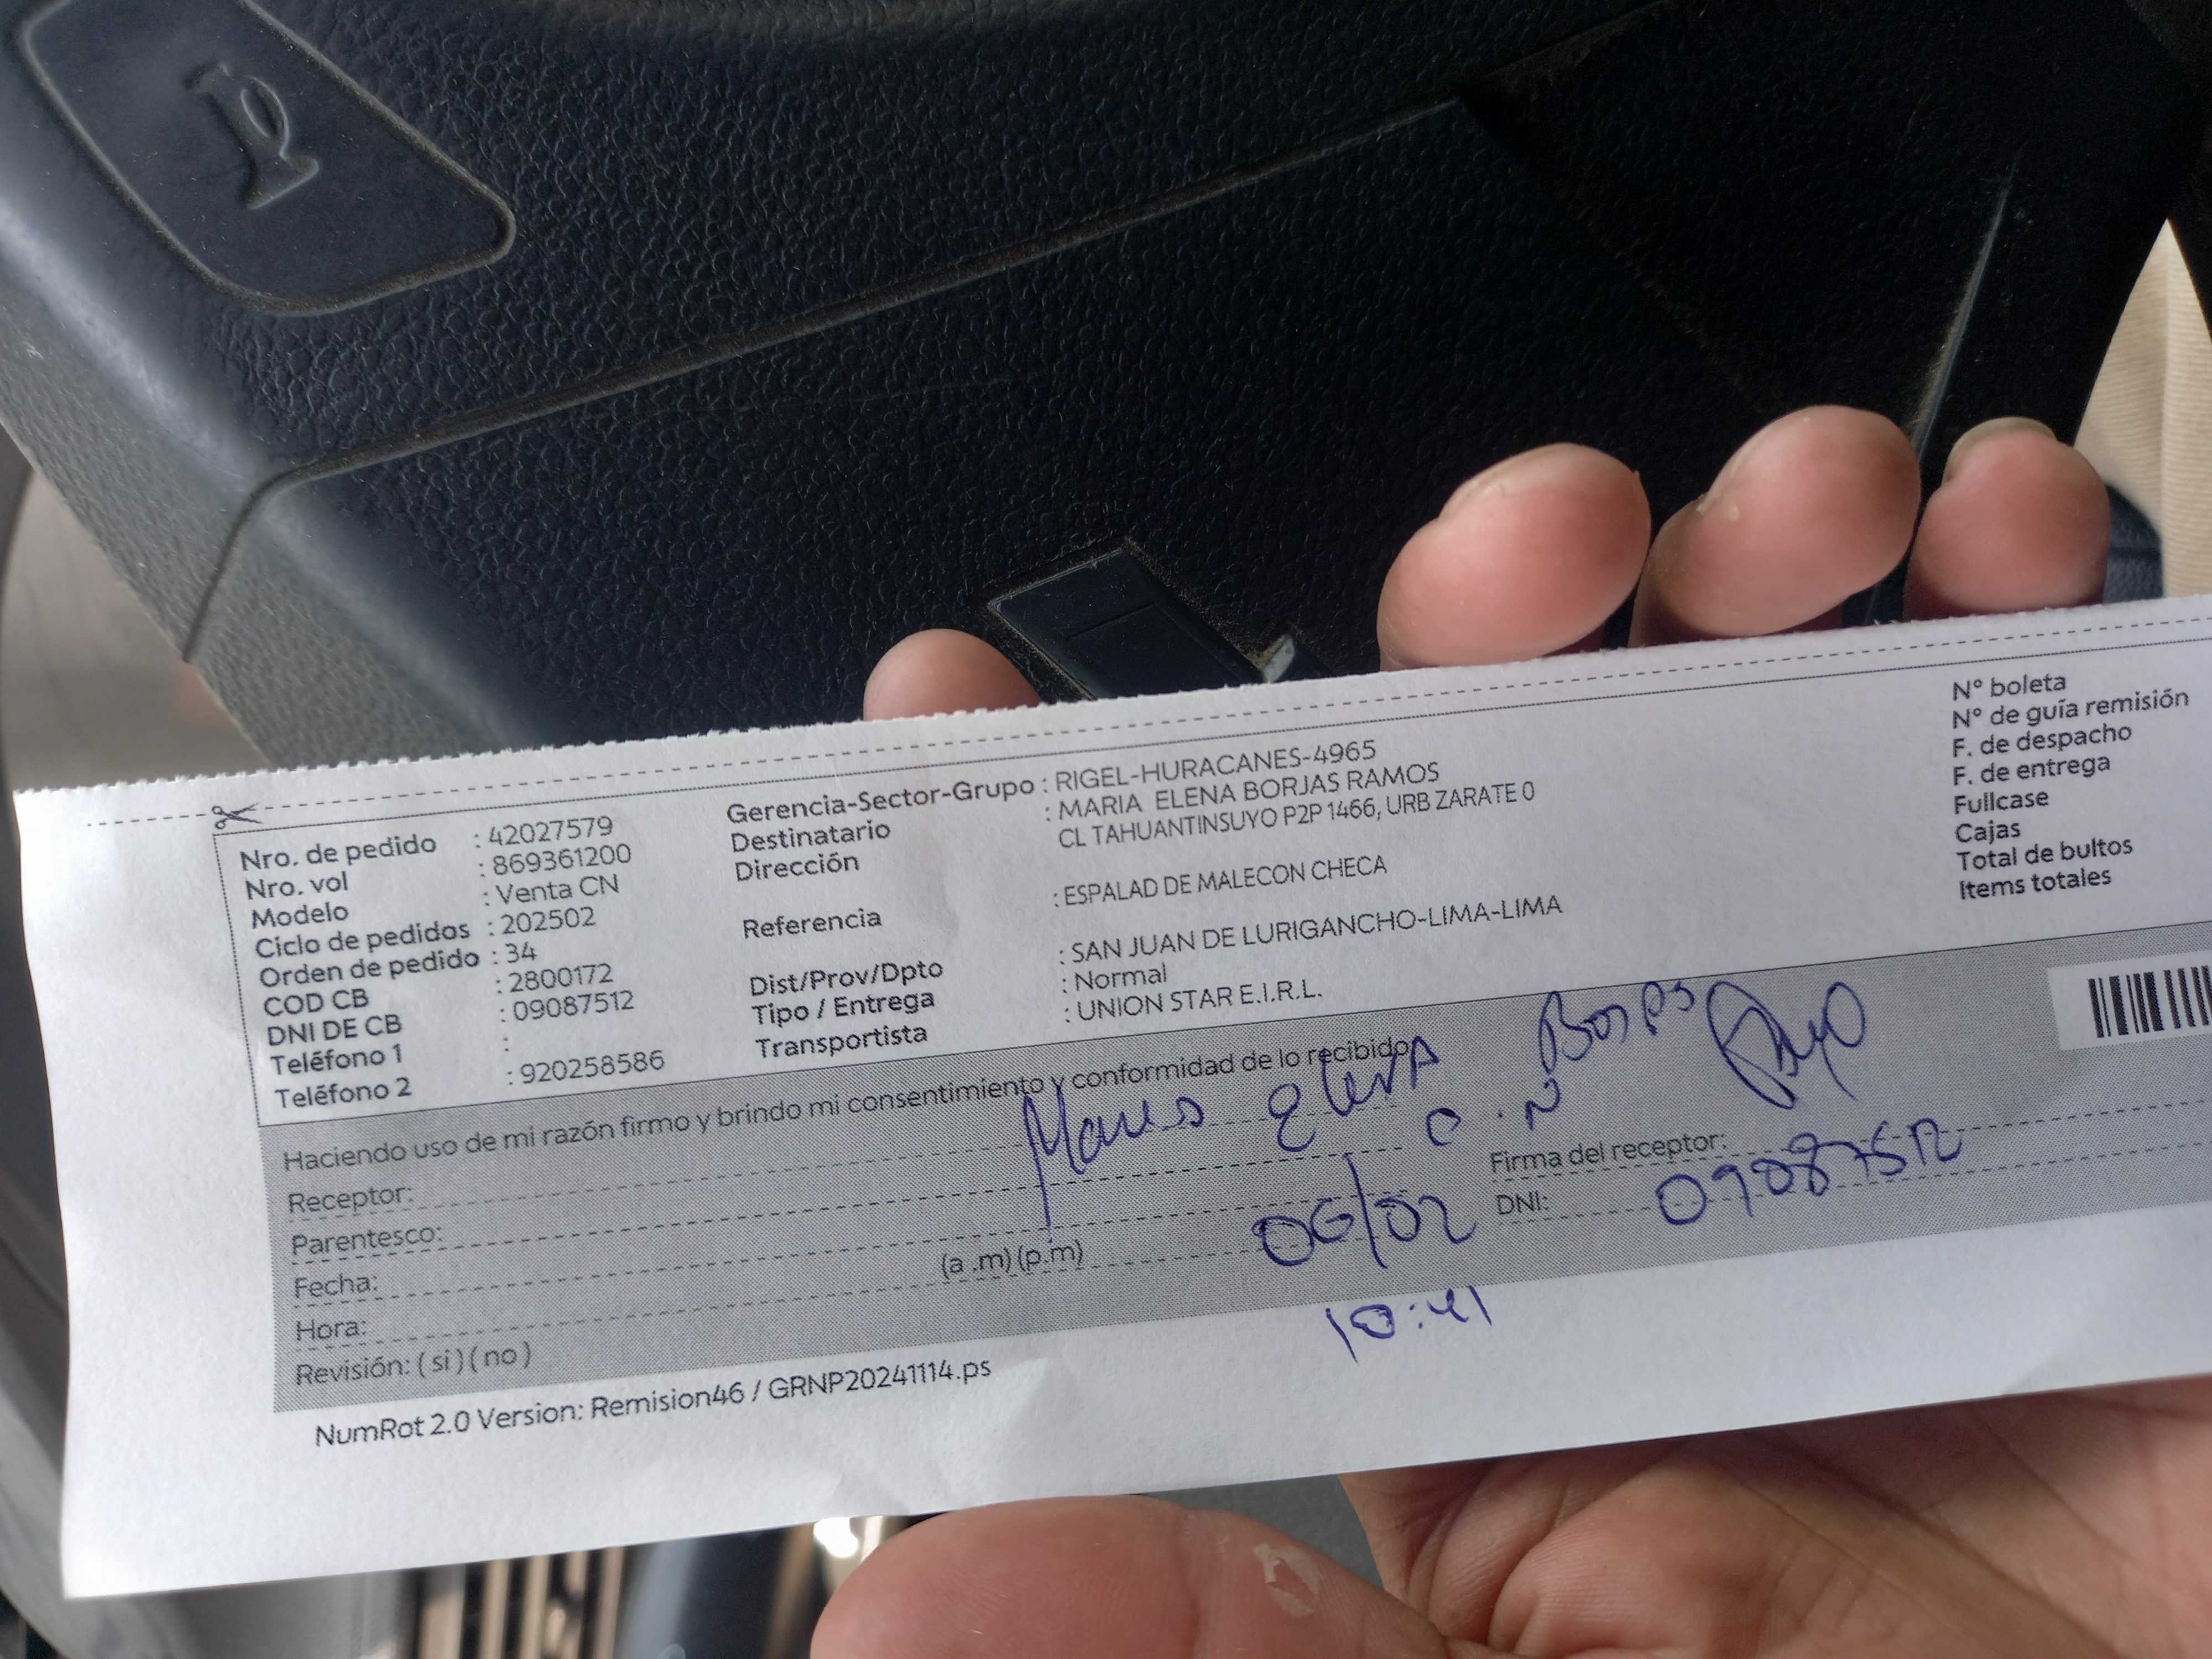 Nro. de pedido : 42027579
Nro. vol : 869361200
Modelo : Venta CN
Ciclo de pedidos : 202502
Orden de pedido : 34
COD CB : 2800172
DNI DE CB : 09087512
Teléfono 1 :
Teléfono 2 : 920258586
Gerencia-Sector-Grupo : RIGEL-HURACANES-4965
Destinatario : MARIA ELENA BORJAS RAMOS
Dirección CL TAHUANTINSUYO P2P 1466, URB ZARATE 0
Referencia : ESPALAD DE MALECON CHECA
Dist/Prov/Dpto : SAN JUAN DE LURIGANCHO-LIMA-LIMA
Tipo / Entrega : Normal
Transportista : UNION STAR E.I.R.L.
N° boleta
N° de guía remisión
F. de despacho
F. de entrega
Fullcase
Cajas
Total de bultos
Items totales
Haciendo uso de mi razón firmo y brindo mi consentimiento y conformidad de lo recibido
Receptor:
Parentesco: C.N
Firma del receptor:
Fecha: 06/02
DNI: 09087512
Hora: (a .m) (p.m) 10:41
Revisión: ( si ) ( no )
NumRot 2.0 Version: Remision46 / GRNP20241114.ps